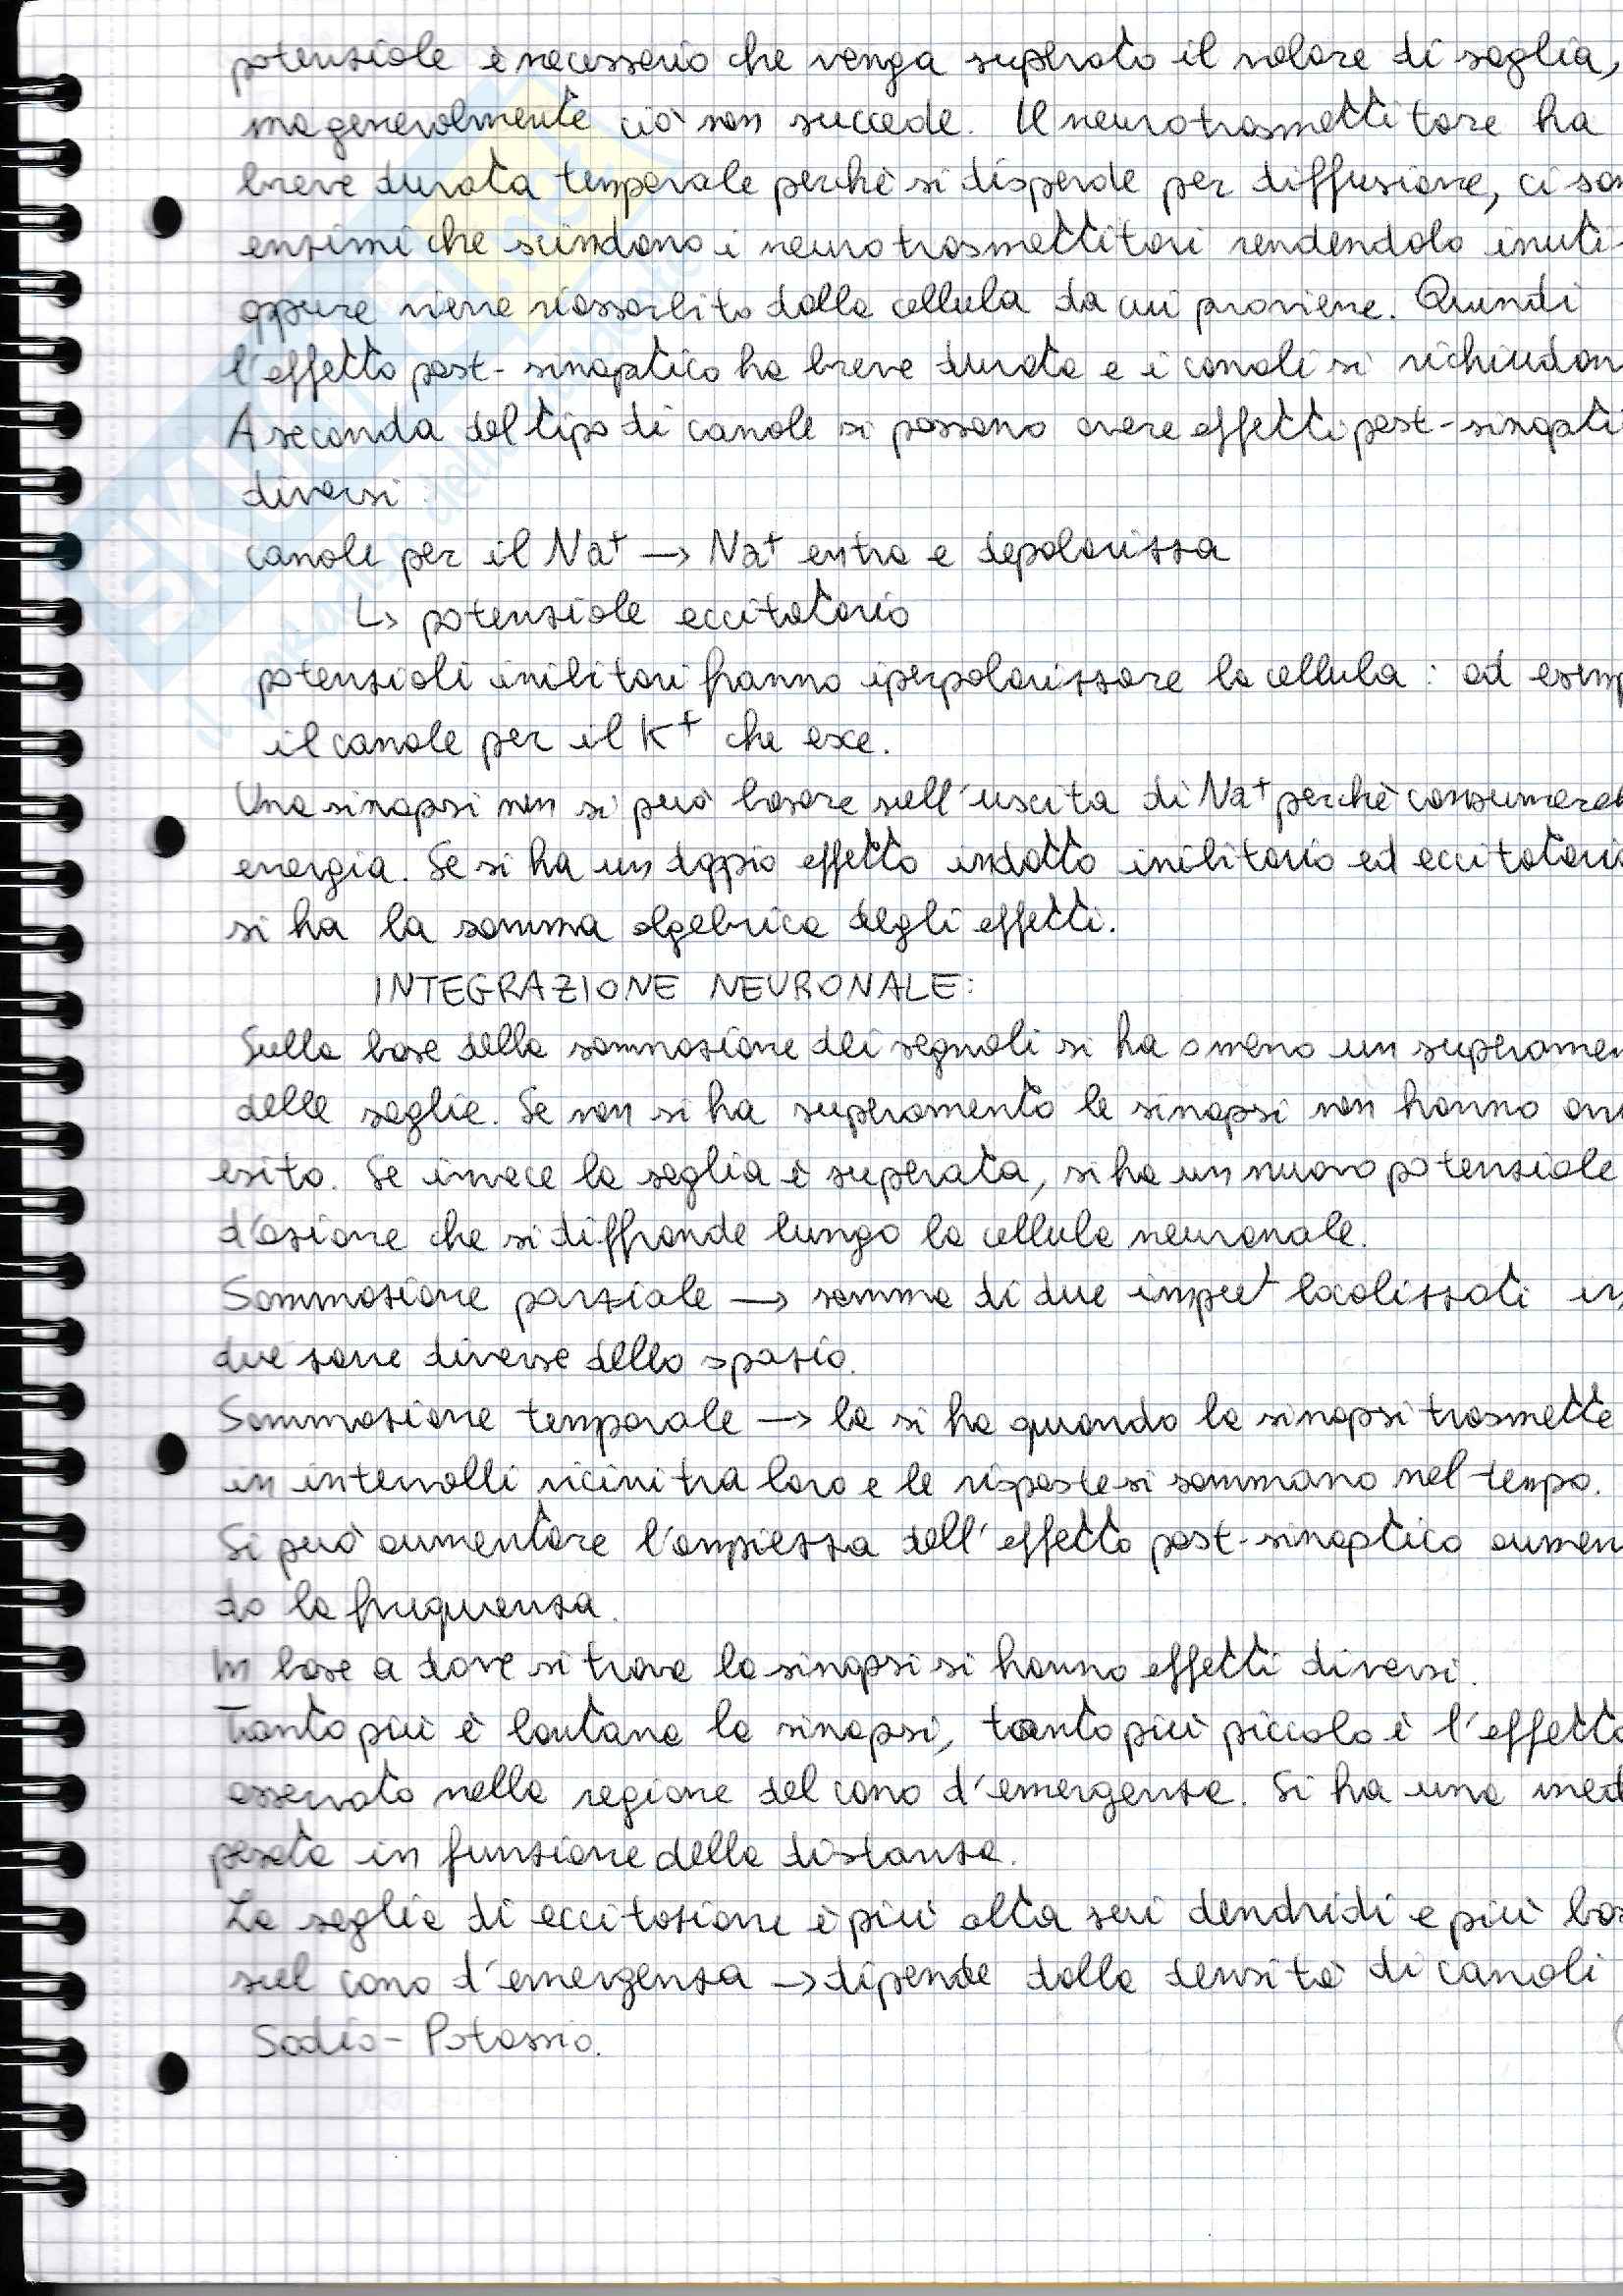 potenziale è necessario che venga superato il valore di soglia,
ma generalmente ciò non succede. Il neurotrasmettitore ha
breve durata temporale perchè si disperde per diffusione, ci son
enzimi che scindono i neurotrasmettitori rendendolo inuti
oppure viene riassorbito dalla cellula da cui proviene. Quindi
l'effetto post-sinaptico ha breve durata e i canali si richiudon
A seconda del tipo di canale si possono avere effetti post-sinapti
diversi:
canale per il Na+ → Na+ entra e depolarizza
↳ potenziale eccitatorio
potenziali inibitori fanno iperpolarizzare la cellula: ad esemp
il canale per il K+ che esce.
Una sinapsi non si può basare sull'uscita di Na+ perchè consumereb
energia. Se si ha un doppio effetto indotto inibitorio ed eccitatorio
si ha la somma algebrica degli effetti.
INTEGRAZIONE NEURONALE:
Sulla base della sommazione dei segnali si ha o meno un superamen
delle soglie. Se non si ha superamento le sinapsi non hanno avu
esito. Se invece la soglia è superata, si ha un nuovo potenziale
d'azione che si diffonde lungo la cellula neuronale.
Sommazione parziale → somma di due localizzati in
due zone diverse dello spazio.
Sommazione temporale → la si ha quando la sinapsi trasmette
in intervalli vicini tra loro e le risposte si sommano nel tempo.
Si può aumentare l'ampiezza dell'effetto post-sinaptico aumen
do la frequenza.
In base a dove si trova la sinapsi si hanno effetti diversi.
Tanto più è lontana la sinapsi, tanto più piccolo è l'effetto
osservato nella regione del cono d'emergenza. Si ha una med
pesata in funzione della distanza.
La soglia di eccitazione è più alta sui dendridi e più bas
sul cono d'emergenza → dipende dalla densità di canali
Sodio-Potassio.